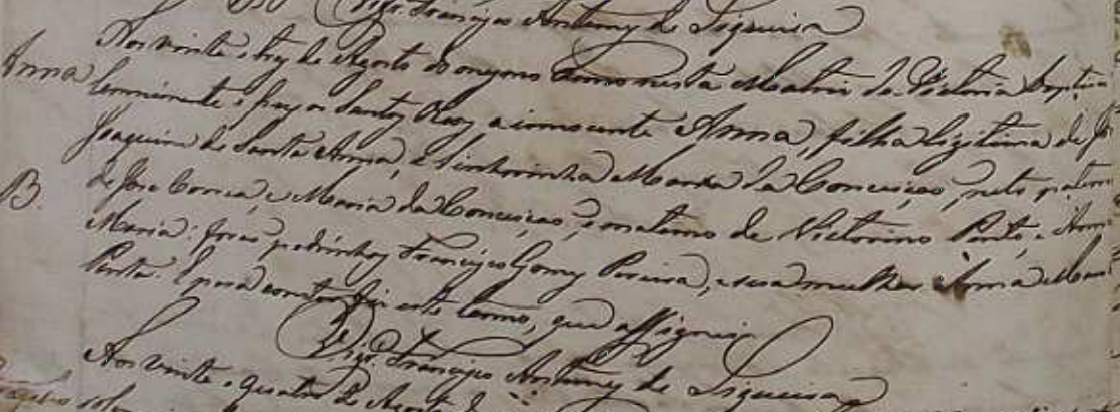 Vigr.º Francisco Antunes de Siqueira
Anna
Aos vinte e trez de Agosto do mesmo anno nesta Matriz da Victoria baptizei
solemnemente, e puz os Santos Oleos a innocente Anna, filha legitima de
Joaquim de Santa Anna, e Senhorinha Maria da Conceiçao, neto paterno
B.
de Jose Correa, e Maria da Conceiçao, e materno de Victorino Pinto, e Anna
Maria: forao padrinhos Francisco Gomes Pereira, e sua mulher Anna Maria
Pinta. E para constar fiz este termo, que assignei.
Vigr.º Francisco Antunes de Siqueira
Aos vinte e quatro de Agosto